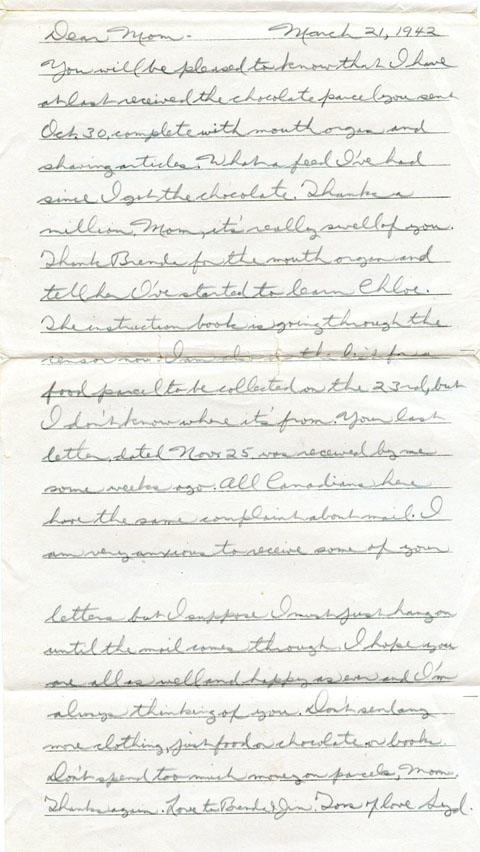 Dear Mom - March 21, 1942
You will be pleased to know that I have
at last received the chocolate parcel you sent
Oct. 30, complete with mouth organ and
shaving articles. What a feed I've had
since I got the chocolate. Thanks a
million, Mom, it's really swell of you.
Thank Brenda for the mouth organ and
tell her I've started to learn Chloe.
The instruction book is going through the
censor now. I am also on the list for a
food parcel to be collected on the 23rd, but
I don't know where it's from. Your last
letter, dated Nov. 25 was received by me
some weeks ago. All Canadians here
have the same complaint about mail. I
am very anxious to receive some of your
letters but I suppose I must just hang on
until the mail comes through. I hope you
are all as well and happy as ever and I'm
always thinking of you. Don't send any
more clothing, just food or chocolate or books.
Don't spend too much money on parcels, Mom.
Thanks again. Love to Brenda & Jim. Tons of love Syd.